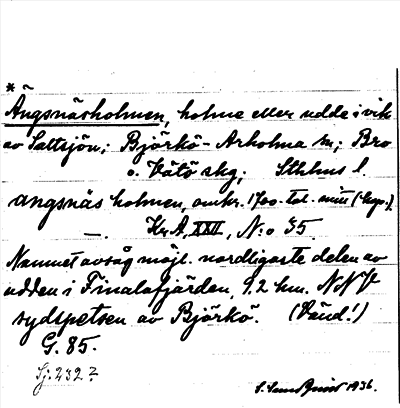 *
Ängsnäsholmen, holme eller udde i vik
av Saltsjön; Björkö-Arholma sn; Bro
o. Vätö skg; Sthlms l.
angsnäs holmen, omkr. 1700-tal. mitt (kop.)
—. KrA, XXII, N:o 35.
Namnet avsåg möjl. nordligaste delen av
udden i Finalafjärden, 9.2 hm. NNV
sydspetsen av Björkö. (Vänd!)
G. 85.
Sj. 232?
S. 1936.